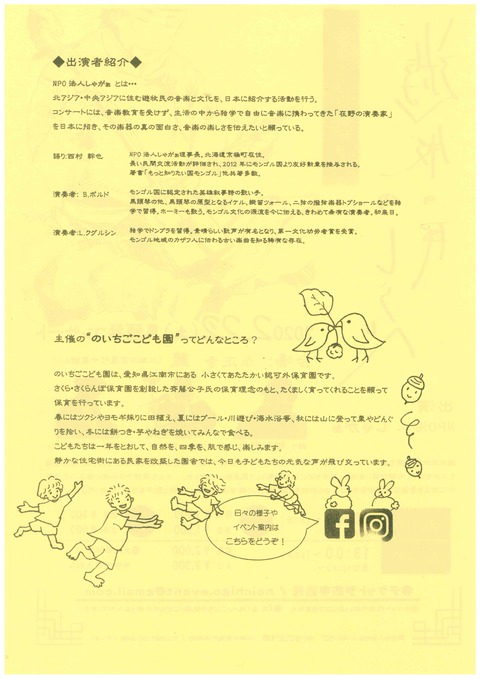 ◆出演者紹介◆
NPO法人しゃがぁ とは…
北アジア・中央アジアに住む遊牧民の音楽と文化を、日本に紹介する活動を行う。
コンサートには、音楽教育を受けず、生活の中から独学で自由に音楽に携わってきた「在野の演奏家」
を日本に招き、その楽器の真の面白さ、音楽の楽しさを伝えたいと願っている。
語り:西村 幹也
NPO法人しゃがぁ理事長。北海道京極町在住。
長い民間交流活動が評価され、2012年にモンゴル国より友好勲章を授与される。
著書「もっと知りたい国モンゴル」他共著多数。
演奏者: B.ボルド
モンゴル国に認定された英雄叙事詩の歌い手。
馬頭琴の他、馬頭琴の原型となるイケル、縦笛ツォール、二弦の撥弦楽器トプショールなどを独
学で習得。ホーミーも歌う。モンゴル文化の源流を今に伝える、きわめて希有な演奏者。初来日。
演奏者:L.クグルシン
独学でドンブラを習得。素晴らしい歌声が有名となり、第一文化功労者賞を受賞。
モンゴル地域のカザフ人に伝わる古い楽曲を知る稀有な存在。
主催の“のいちごこども園”ってどんなところ?
のいちごこども園は、愛知県江南市にある 小さくてあたたかい認可外保育園です。
さくら・さくらんぼ保育園を創設した斉藤公子氏の保育理念のもと、たくましく育ってくれることを願って
保育を行っています。
春にはツクシやヨモギ採りに田植え、夏にはプール・川遊び・海水浴等、秋には山に登って栗やどんぐ
りを拾い、冬には餅つき・芋やねぎを焼いてみんなで食べる。
こどもたちは一年をとおして、自然を、四季を、肌で感じ、楽しみます。
静かな住宅街にある民家を改築した園舎では、今日も子どもたちの元気な声が飛び交っています。
日々の様子や
イベント案内は
こちらをどうぞ!